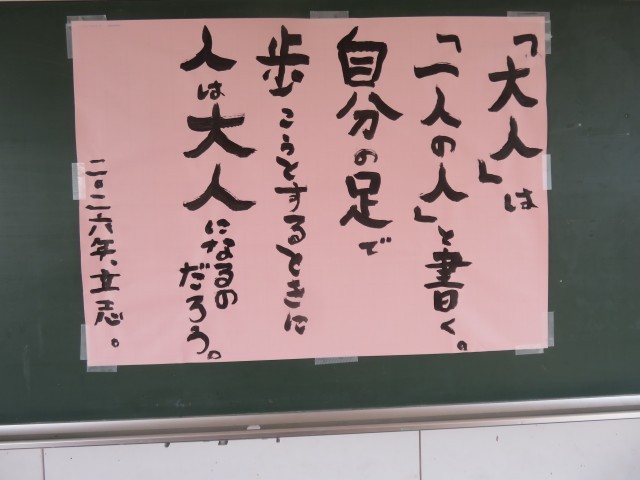 「大人」は
「一人の人」と書く。
自分の足で
歩こうとするときに
人は大人になるの
だろう。
二〇二六年、立志。